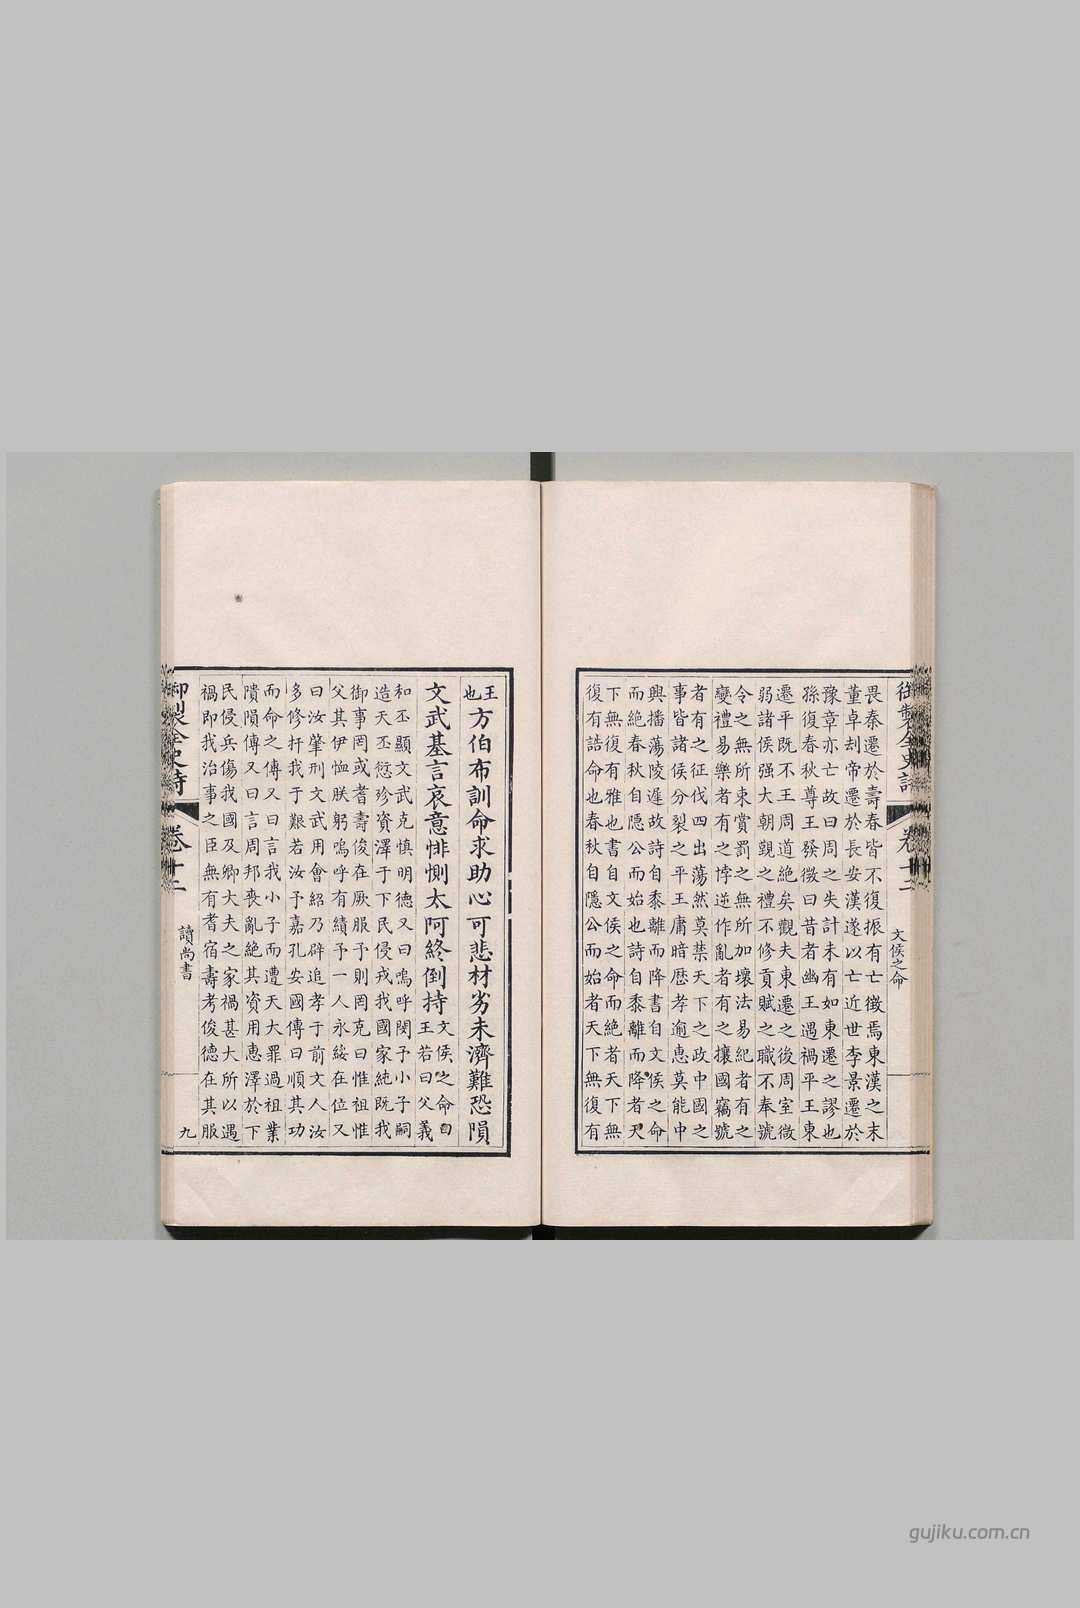 御製全史詩
卷十二
文侯之命
畏秦遷於壽春皆不復振有亡徵焉東漢之末
董卓刦帝遷於長安漢遂以亡近世李景遷於
豫章亦亡故曰周之失計未有如東遷之謬也
孫復春秋尊王發微曰昔者幽王遇禍平王東
遷平既不王周道絶矣觀夫東遷之後周室微
弱諸侯强大朝覲之禮不修貢賦之職不奉號
令之無所束賞罰之無所加壞法易紀者有之
變禮易樂者有之悖逆作亂者有之攘國竊號
者有之征伐四出蕩然莫禁天下之政中國之
事皆諸侯分裂之平王庸暗歴孝逾惠莫能中
興播蕩陵遲故詩自黍離而降書自文侯之命
而絶春秋自隱公而始也詩自黍離而降者天
下無復有雅也書自文侯之命而絶者天下無
復有誥命也春秋自隱公而始者天下無復有
王也
方伯布訓命求助心可悲材劣未濟難恐隕
文武基言哀意悱惻太阿終倒持
文侯之命曰
王若曰父義
和丕顯文武克慎明德又曰嗚呼閔予小子嗣
造天丕愆殄資澤于下民侵戎我國家純既我
御事罔或耆壽俊在厥服予則罔克曰惟祖惟
父其伊恤朕躬嗚呼有績予一人永綏在位又
曰汝肇刑文武用會紹乃辟追孝于前文人汝
多修扞我于艱若汝予嘉孔安國傳曰順其功
而命之傳又曰言我小子而遭天大罪過祖業
隤隕傳又曰言周邦喪亂絶其資用惠澤於下
民侵兵傷我國及卿大夫之家禍甚大所以遇
禍即我治事之臣無有耆宿壽考俊德在其服
御製全史詩
卷十二
讀尚書
九
gujiku.com.cn